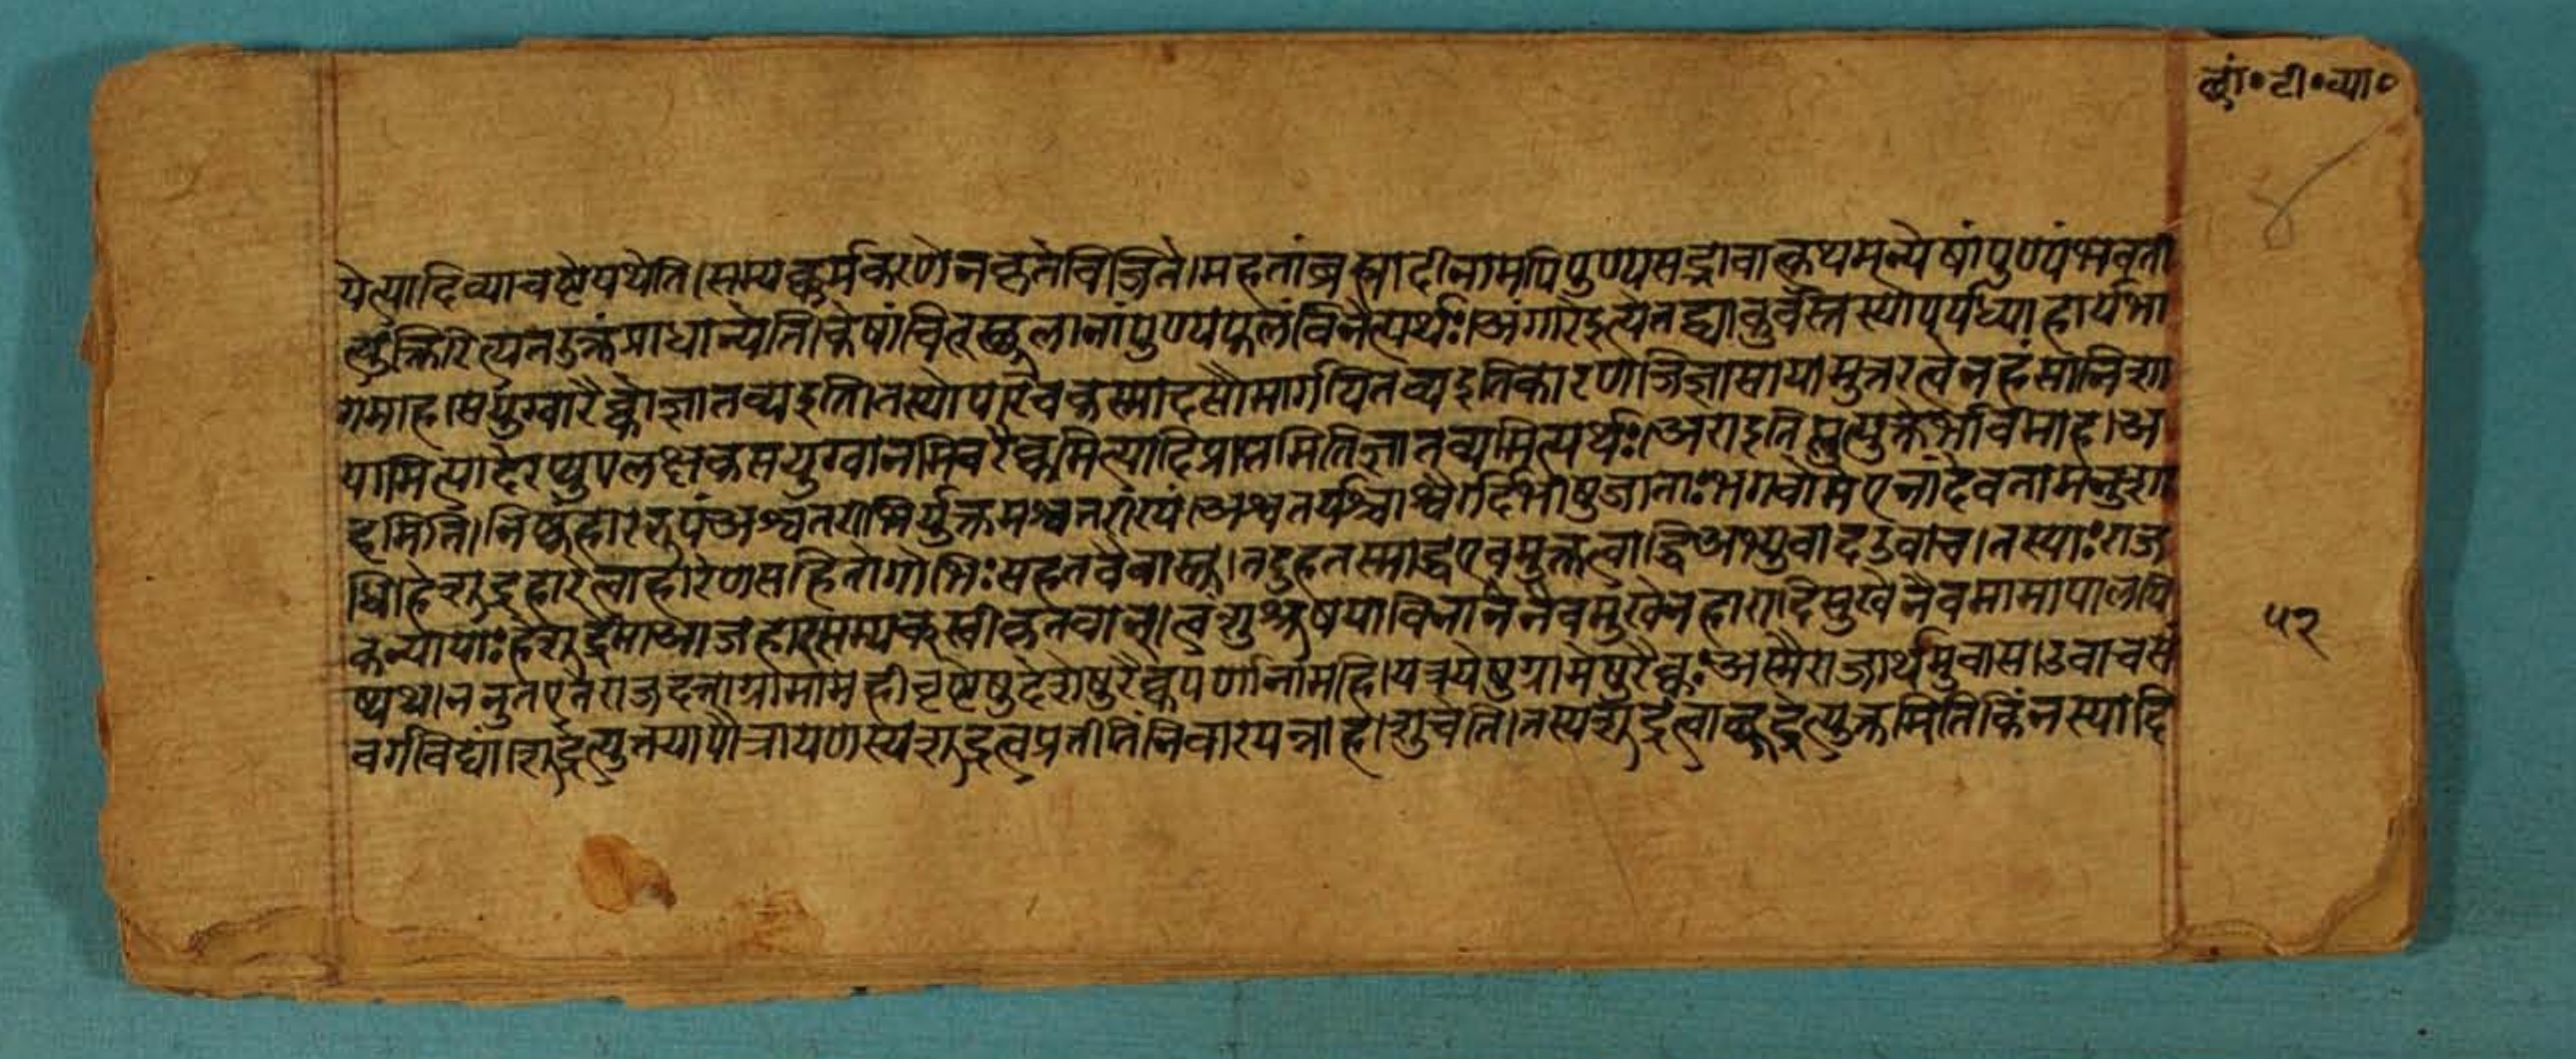 छां॰टी॰व्या॰
येत्यादिव्याचष्टेपथेति।सम्यक्कर्मकरणेनकृतेविजिते।महतांब्रह्मादीनामपिपुण्यसद्भावात्कथमन्येषांपुण्यंभवती
त्युक्तिरित्यतउक्तंप्राधान्येति।केषांचित्स्थूलानांपुण्यफलंविनेत्यर्थः।अंगारेइत्येतद्व्याकुर्वंस्तस्योपर्यध्याहार्यभा
गमाह।सयुग्वारैक्कोज्ञातव्यइति।तस्योपरिचकस्मादसौमार्गयितव्यइतिकारणजिज्ञासायामुत्तरत्वेनहंसानिशा
यामित्यादेरप्युपलक्षकसयुग्वानमिवरैक्कमित्यादिप्राप्तमितिज्ञातव्यमित्यर्थः।अराइतिस्तुत्युक्तेर्भावमाह।अ
हमिति।निष्कंहाररूपंअश्वतराभिर्युक्तमश्वतरीरथं।अश्वतर्यश्चाश्वैर्गर्दभीषुजाताःभगवोमएतांदेवतामनुशा
धि।हेशूद्रहारेत्वाहारेणसहितोगोभिःसहतवैवास्तु।तदुहतस्माद्धएवमुक्तत्वाद्धिअभ्युवादउवाच।तस्याःराज
कन्यायाःहेशूद्रेमाआजहारसम्यक्स्वीकृतवान्।त्वंशुश्रूषयाविनानेनैवमुखेनहारादिमुखेनैवमामापालयि
ष्यथ।ननुतएतेराजदत्ताग्रामामहीवृषेषुदेशेषुरैक्कपर्णानामहि।यत्रयेषुग्रामेषुरैक्कःअस्मैराजार्थमुवास।उवाचसं
वर्गविद्यां।शूद्रेत्युक्तयापौत्रायणस्यशूद्रत्वप्रतीतिंनिवारयन्नाह।शुचेति।तस्यशूद्रत्वाच्छूद्रेत्युक्तमितिकिंनस्यादि
५२